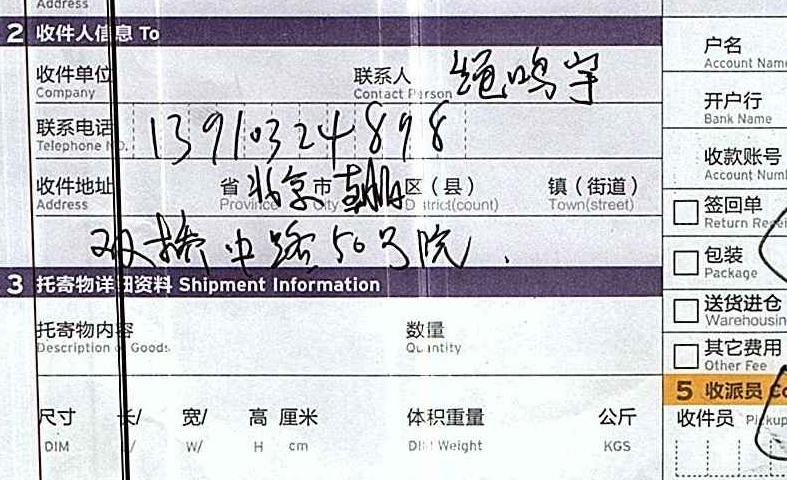 Address
2 收件人信息 To
收件单位 联系人 绳鸣宇
Company Contact Person
联系电话 13910324898
Telephone NO.
收件地址 省 北京 市 朝阳 区（县） 镇（街道）
Address Province City District(count) Town(street)
双桥中路50号院.
3 托寄物详细资料 Shipment Information
托寄物内容 数量
Description of Goods Quantity
尺寸 长/ 宽/ 高 厘米 体积重量 公斤
DIM L/ W/ H cm DIM Weight KGS
户名
Account Name
开户行
Bank Name
收款账号
Account Num
签回单
Return Recei
包装
Package
送货进仓
Warehousin
其它费用
Other Fee
5 收派员 Co
收件员 Pickup